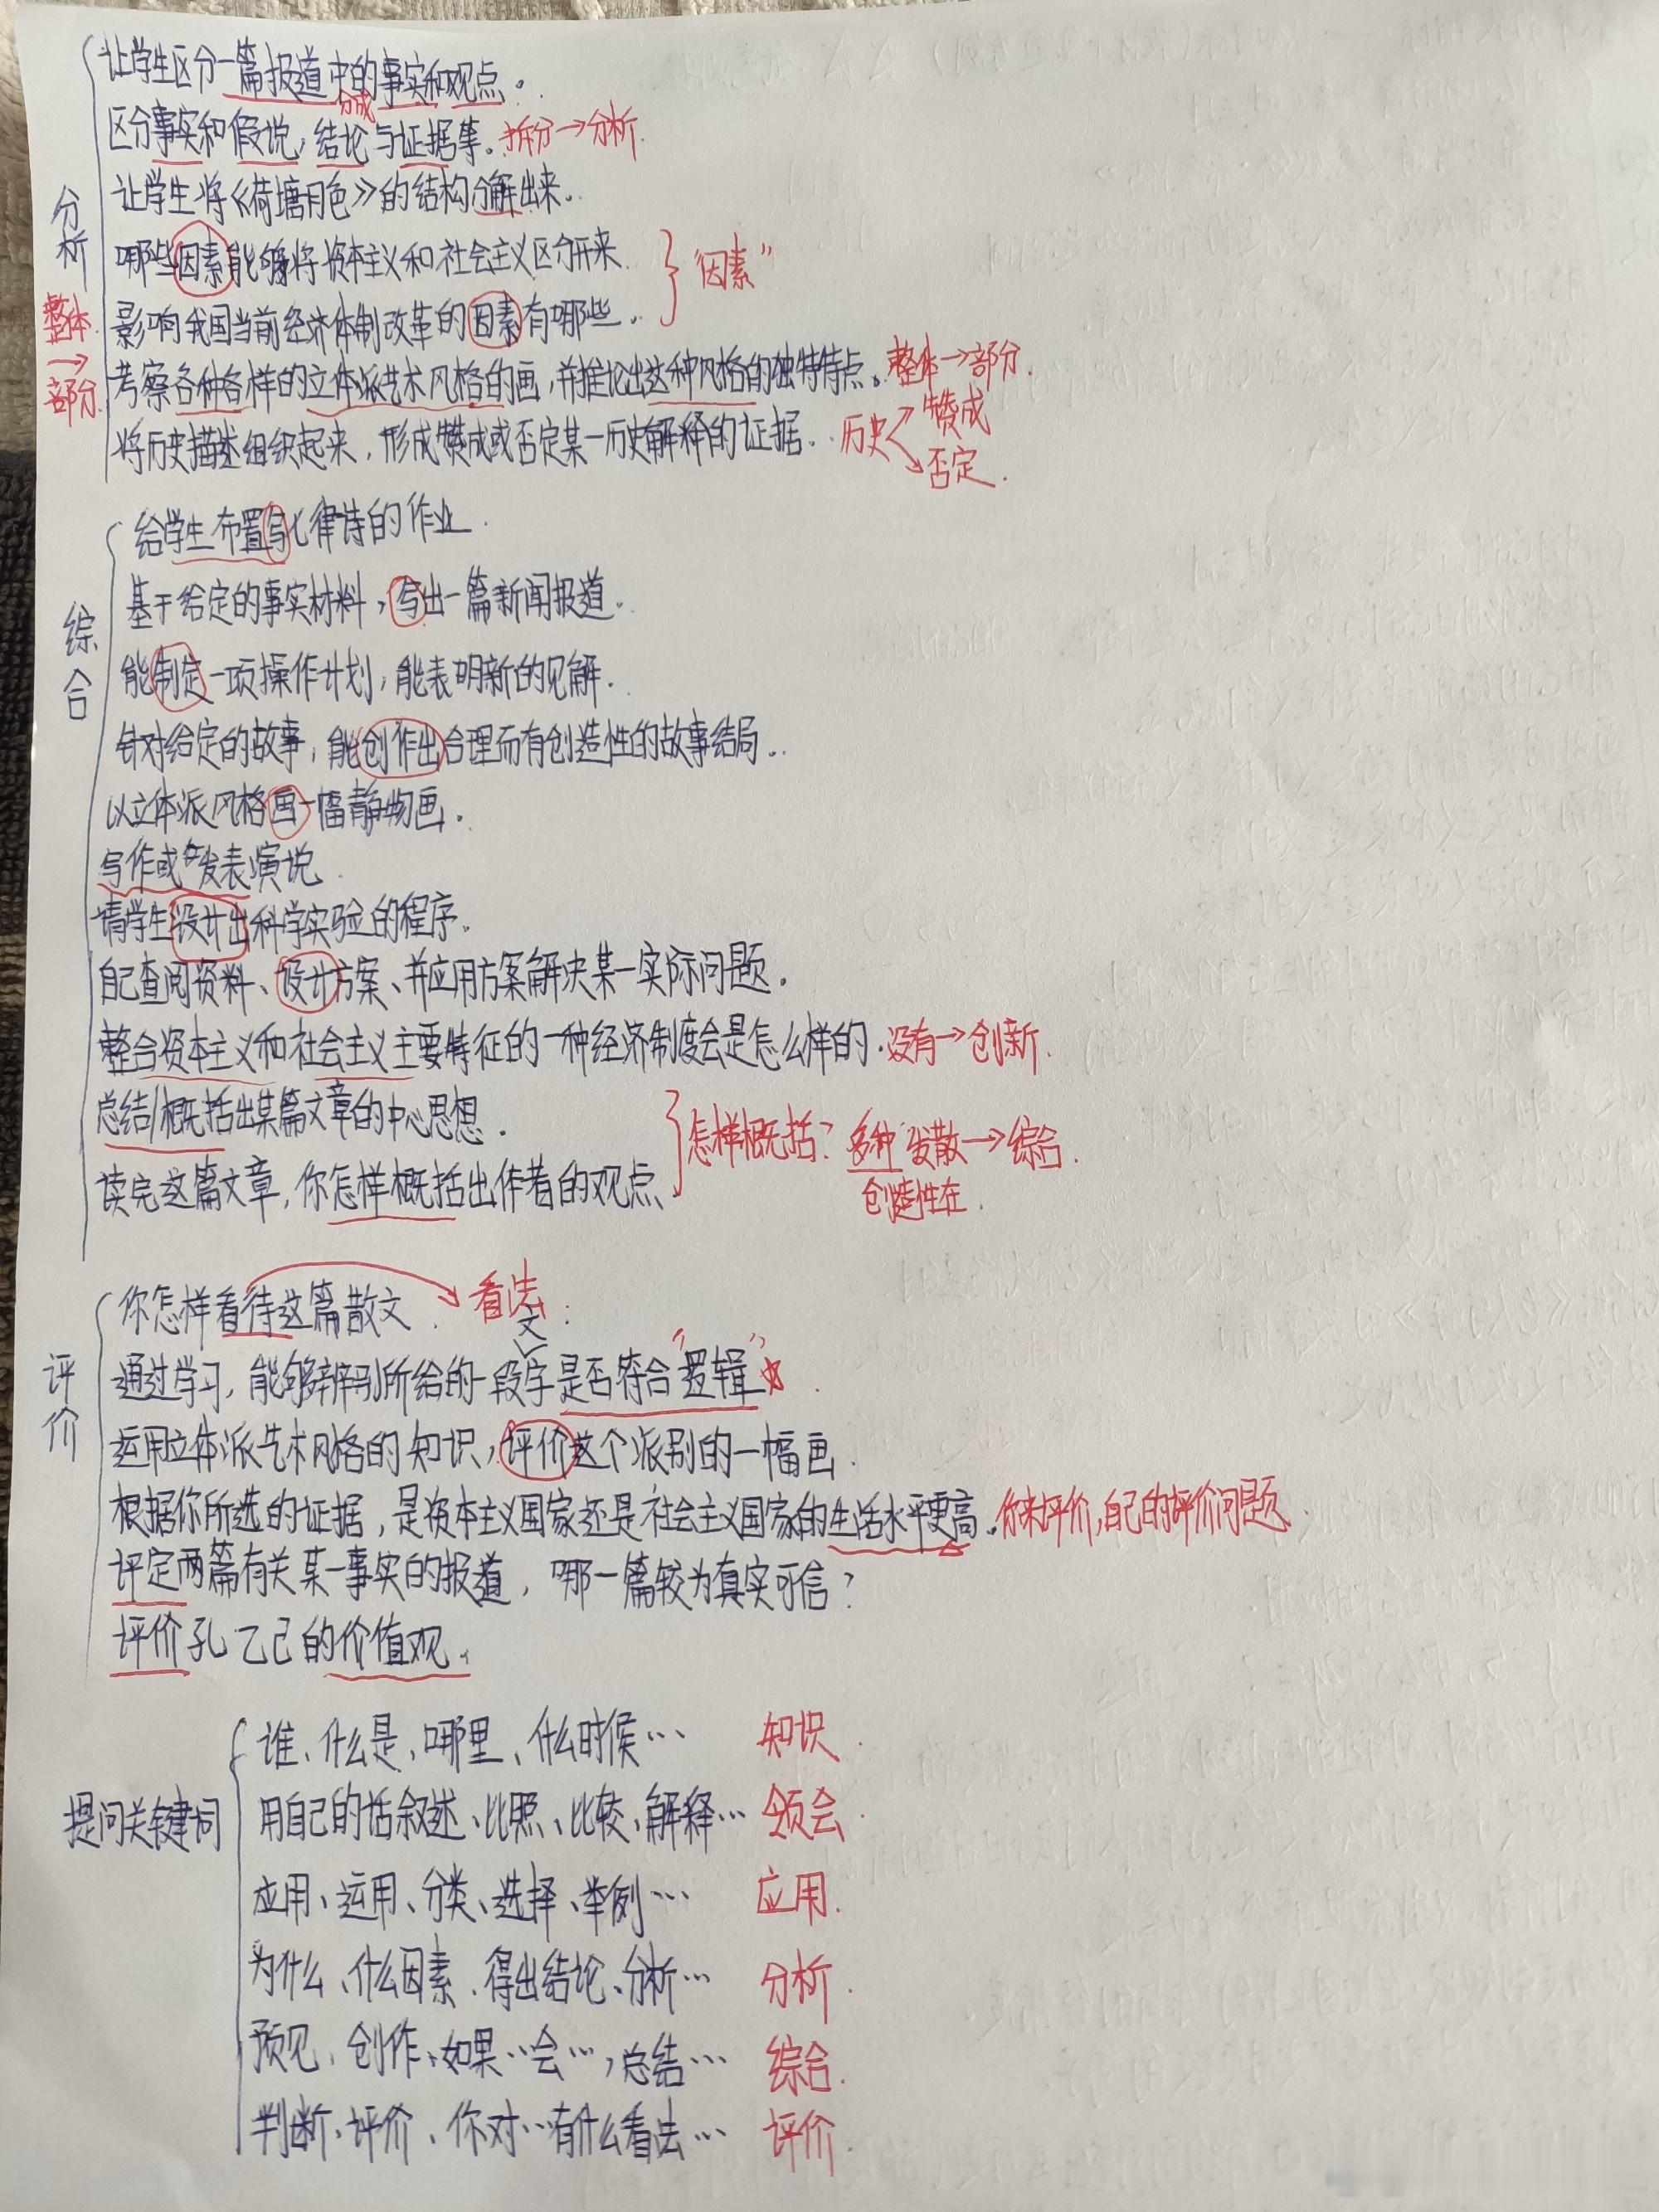 让学生区分一篇报道中的事实和观点。
分成
区分事实和假说，结论与证据等。拆分→分析.
让学生将《荷塘月色》的结构分解出来.
分析
哪些因素能够将资本主义和社会主义区分开来
"因素"
整体→部分
影响我国当前经济体制改革的因素有哪些.
考察各种各样的立体派艺术风格的画，并推论出这种风格的独特特点。整体→部分.
将历史描述组织起来，形成赞成或否定某一历史解释的证据. 历史 赞成
否定.
给学生布置写七律诗的作业.
基于给定的事实材料，写出一篇新闻报道.
综合
能制定一项操作计划，能表明新的见解.
针对给定的故事，能创作出合理而有创造性的故事结局.
以立体派风格画一幅静物画.
写作或发表演说
请学生设计出科学实验的程序.
自己查阅资料、设计方案、并应用方案解决某一实际问题.
整合资本主义和社会主义主要特征的一种经济制度会是怎么样的.没有→创新.
总结/概括出某篇文章的中心思想.
怎样概括？多种 发散→综合.
创造性在.
读完这篇文章，你怎样概括出作者的观点、
你怎样看待这篇散文. 看法.
评价
通过学习，能够辨别所给的一段文字是否符合"逻辑"
运用立体派艺术风格的知识，评价这个派别的一幅画.
根据你所选的证据，是资本主义国家还是社会主义国家的生活水平更高.你来评价，自己的评价问题.
评定两篇有关某一事实的报道，哪一篇较为真实可信？
评价孔乙己的价值观.
提问关键词
谁、什么是、哪里、什么时候… 知识.
用自己的话叙述、比照、比较、解释… 领会.
应用、运用、分类、选择、举例… 应用.
为什么、什么因素、得出结论、分析… 分析.
预见、创作、如果…会…，总结… 综合.
判断、评价、你对…有什么看法… 评价.